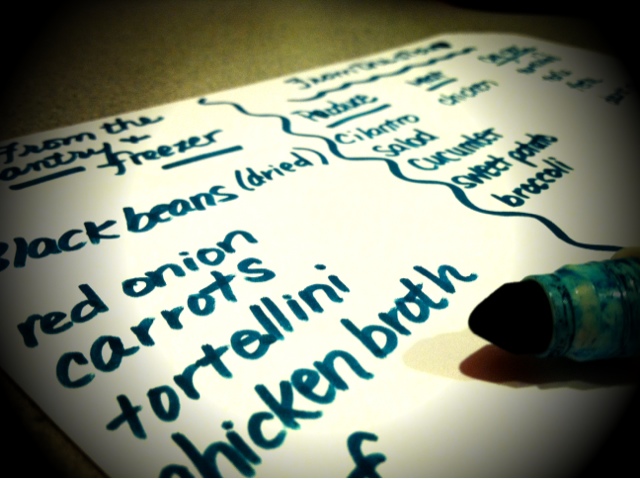 From the
antry + freezer
Black beans (dried)
red onion
carrots
tortellini
chicken broth
From the
Produce
Cilantro
Salad
Cucumber
sweet potato
broccoli
meat
chicken